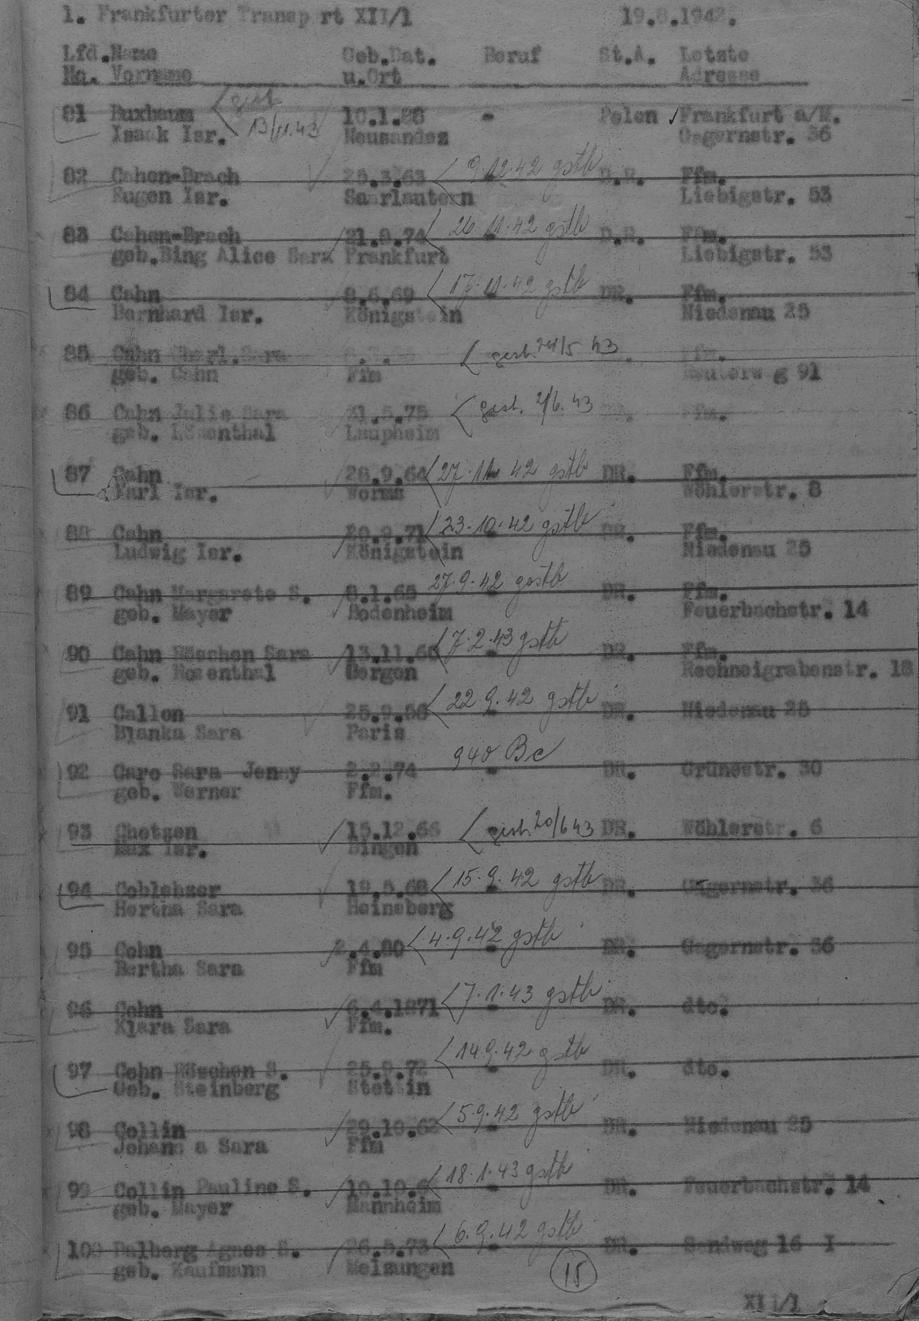 1. Frankfurter Transport XII/1 19.8.1942.
Lfd. Name Geb.Dat. Beruf St.A. Letzte
No. Vorname u.Ort Adresse
81 Buxbaum < gest. 10.1.88 " Polen Frankfurt a/M.
Isaak Isr. 13/11.43 Neusandez Gagernstr. 36
82 Cahen-Brach 25.3.63 < 9.12.42 gstb D.R. Ffm.
Eugen Isr. Saarlautern Liebigstr. 53
83 Cahen-Brach 21.9.74 < 26.11.42 gstb D.R. Ffm.
geb.Bing Alice Sara Frankfurt Liebigstr. 53
84 Cahn 8.6.69 < 17.11.42 gstb DR. Ffm.
Bernhard Isr. Königstein Niedenau 25
85 Cahn Sara < gest. 24/5 43 Ffm.
geb. Cahn Ffm Reuterweg 91
86 Cahn Julie Sara 21.5.75 < gest. 2/6.43 DR. Ffm.
geb. Löwenthal Laupheim
87 Cahn 28.9.64 < 27.11.42 gstb DR. Ffm.
Karl Isr. Worms Wöhlerstr. 8
88 Cahn 20.9.71 < 23.10.42 gstb DR. Ffm.
Ludwig Isr. Königstein Niedenau 25
89 Cahn Margarete S. 8.1.65 27.9.42 gestb DR. Ffm.
geb. Mayer Bodenheim Feuerbachstr. 14
90 Cahn Röschen Sara 13.11.60 < 7.2.43 gstb DR. Ffm.
geb. Rosenthal Bergen Rechneigrabenstr. 18
91 Callon 25.9.56 < 22.9.42 gstb DR. Niedenau 25
Bjanka Sara Paris
92 Caro Sara Jenny 2.2.74 940 Bc DR. Grünestr. 30
geb. Werner Ffm.
93 Chotzen 15.12.66 < gest. 20/6 43 DR. Wöhlerstr. 6
Max Isr. Bingen
94 Coblenzer 19.5.68 < 15.9.42 gstb DR. Gagernstr. 36
Hertha Sara Heinsberg
95 Cohn 2.4.80 < 4.9.42 gstb DR. Gagernstr. 36
Bertha Sara Ffm
96 Cohn 6.4.1871 < 7.1.43 gstb DR. dto.
Klara Sara Ffm.
97 Cohn Röschen S. 25.9.72 < 14.9.42 gstb DR. dto.
Geb. Steinberg Stettin
98 Collin 29.10.62 < 5.9.42 gstb DR. Niedenau 25
Johanna Sara Ffm
99 Collin Pauline S. < 18.1.43 gstb DR. Feuerbachstr. 14
geb. Mayer Mannheim
100 Dalberg Agnes S. 26.5.73 < 6.9.42 gstb DR. Sandweg 16 I
geb. Kaufmann Melsungen 15
XII/1